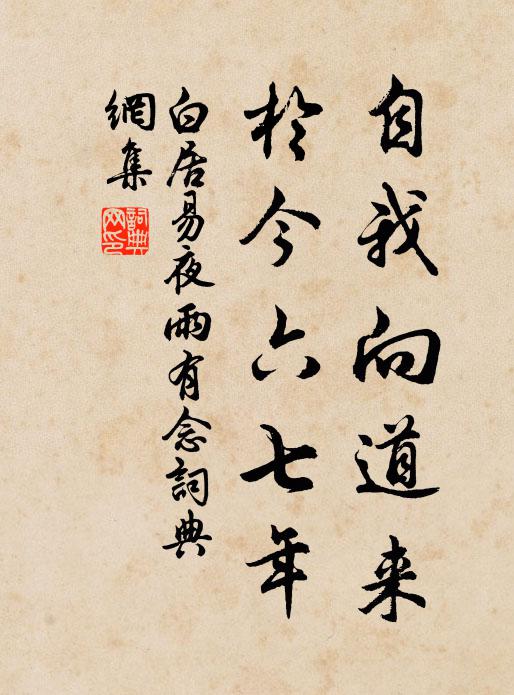 自我向道来
於今六七年
白居易夜雨有念詞典
網集
詞典
网印